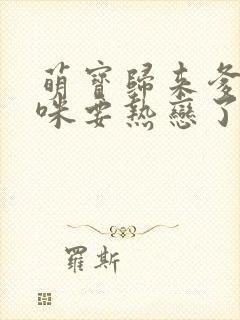 萌寶歸來爹
咪要熱戀了
羅斯